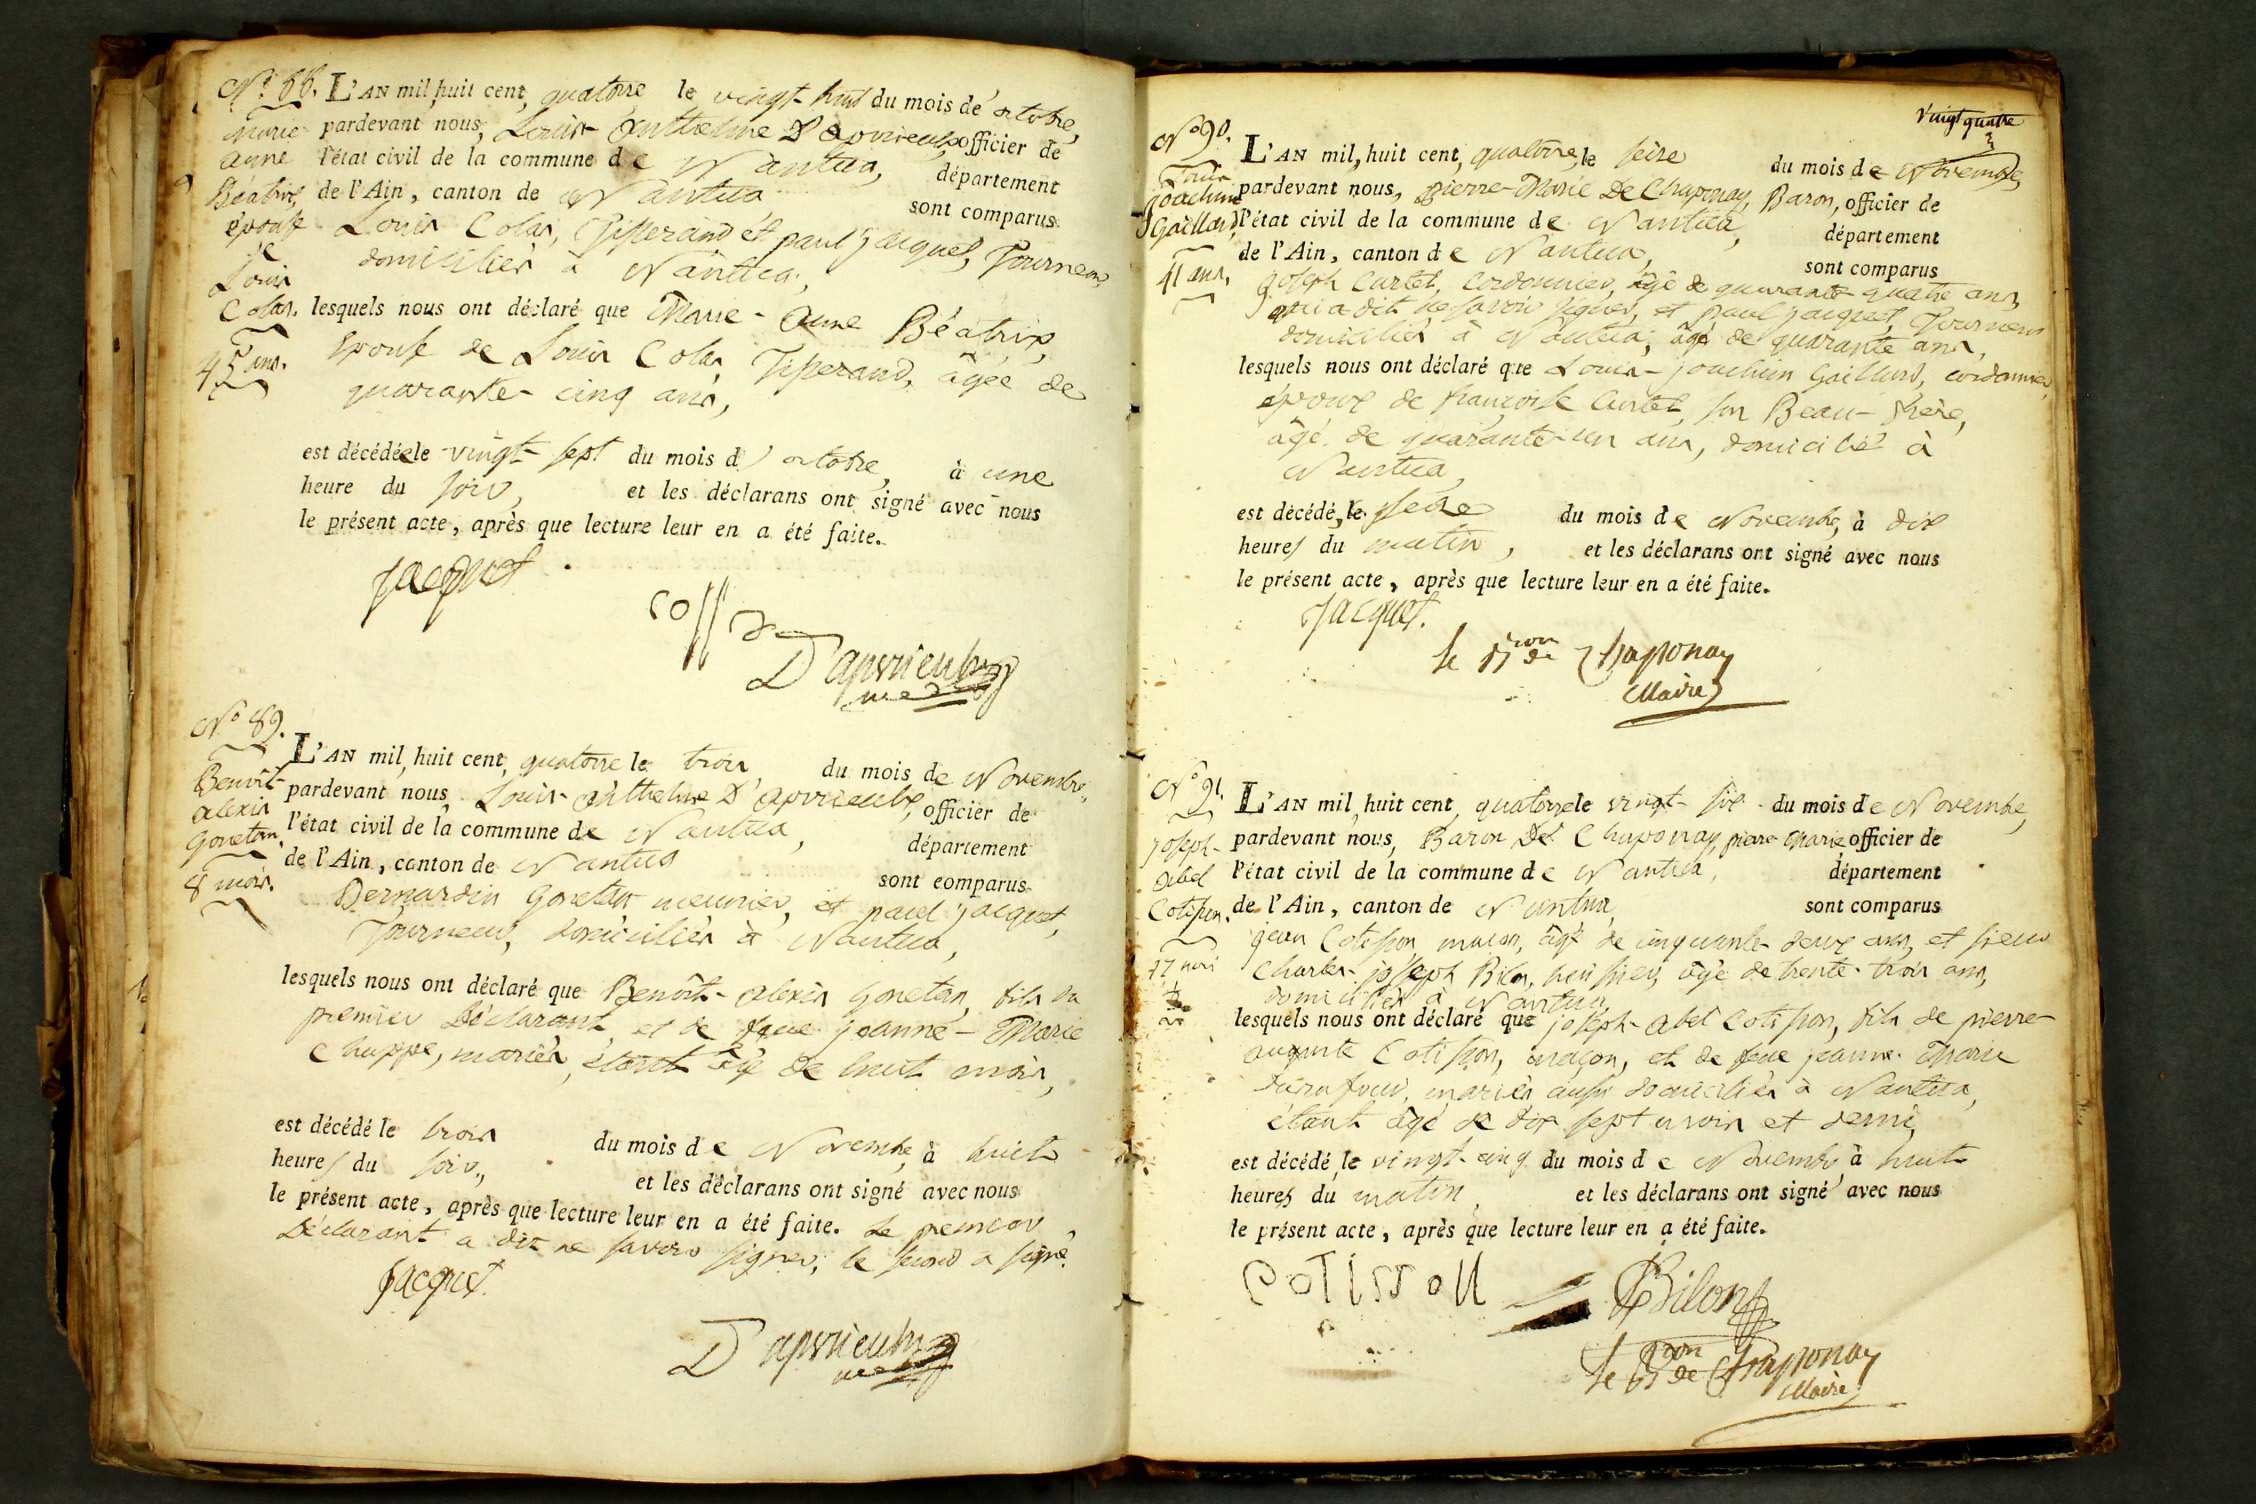 N.° 88.
Marie
anne
Béatrix,
épouse
de
Louis
Colas.
45 ans.
L'AN mil huit cent quatorze le vingt-huit du mois d'octobre,
pardevant nous, Louis-Anthelme D'apvrieulx, officier de
l'état civil de la commune de Nantua, département
de l'Ain, canton de Nantua sont comparus
Louis Colas, Tisserand et paul jacquet, Tourneur,
domiciliés à Nantua,
lesquels nous ont déclaré que Marie-Anne Béatrix,
Epouse de Louis Colas, Tisserand, âgée de
quarante-cinq ans,
est décédée le vingt-sept du mois d'octobre, à une
heure du soir, et les déclarans ont signé avec nous
le présent acte, après que lecture leur en a été faite.
jacquet
D'apvrieulx
N° 89.
Benoît-
alexis
Gonetan.
8 mois.
L'AN mil, huit cent, quatorze le trois du mois de Novembre,
pardevant nous, Louis-Anthelme D'apvrieulx, officier de
l'état civil de la commune de Nantua, département
de l'Ain, canton de Nantua sont comparus
Bernardin Gonetan meunier, et paul jacquet,
Tourneur, domiciliés à Nantua,
lesquels nous ont déclaré que Benoît-alexis Gonetan, fils du
premier Déclarant et de feue jeanne-Marie
Chappe, mariés, étant âgé de huit mois,
est décédé le trois du mois de Novembre, à huit
heures du soir, et les déclarans ont signé avec nous
le présent acte, après que lecture leur en a été faite. Le premier
Déclarant a dit ne savoir signer; le second a signé.
jacquet.
D'apvrieulx
Vingt quatre
N° 90.
Louis
joachim
Gaillard
41 ans.
L'AN mil, huit cent, quatorze, le seize du mois de Novembre,
pardevant nous, pierre-Marie De Chaponay, Baron, officier de
l'état civil de la commune de Nantua, département
de l'Ain, canton de Nantua, sont comparus
joseph Curtet, Cordonnier, âgé de quarante quatre ans,
qui a dit ne savoir signer, et paul jacquet, Tourneur
domiciliés à Nantua, âgé de quarante ans,
lesquels nous ont déclaré que Louis-joachim Gaillard, cordonnier,
époux de françoise Curtet, son Beau-frère,
âgé de quarante-un ans, domicilié à
Nantua,
est décédé, le seize du mois de Novembre, à dix
heures du matin, et les déclarans ont signé avec nous
le présent acte, après que lecture leur en a été faite.
jacquet.
le Bron de Chaponay
Maire
N° 91.
joseph-
abel
Cotisson.
17 mois
½
L'AN mil, huit cent, quatorze le vingt-six du mois de Novembre,
pardevant nous, Baron De Chaponay, pierre-Marie officier de
l'état civil de la commune de Nantua, département
de l'Ain, canton de Nantua, sont comparus
jean Cotisson, maçon, âgé de cinquante-deux ans, et sieur
Charles-joseph Bilon, huissier, âgé de trente-trois ans,
domiciliés à Nantua,
lesquels nous ont déclaré que joseph-abel Cotisson, fils de pierre
auguste Cotisson, maçon, et de feue jeanne-Marie
mariés, aussi domiciliés à Nantua,
étant âgé de dix sept mois et demi,
est décédé, le vingt-cinq du mois de Novembre à huit
heures du matin, et les déclarans ont signé avec nous
le présent acte, après que lecture leur en a été faite.
coTisson
Bilon
le Bron de Chaponay
Maire